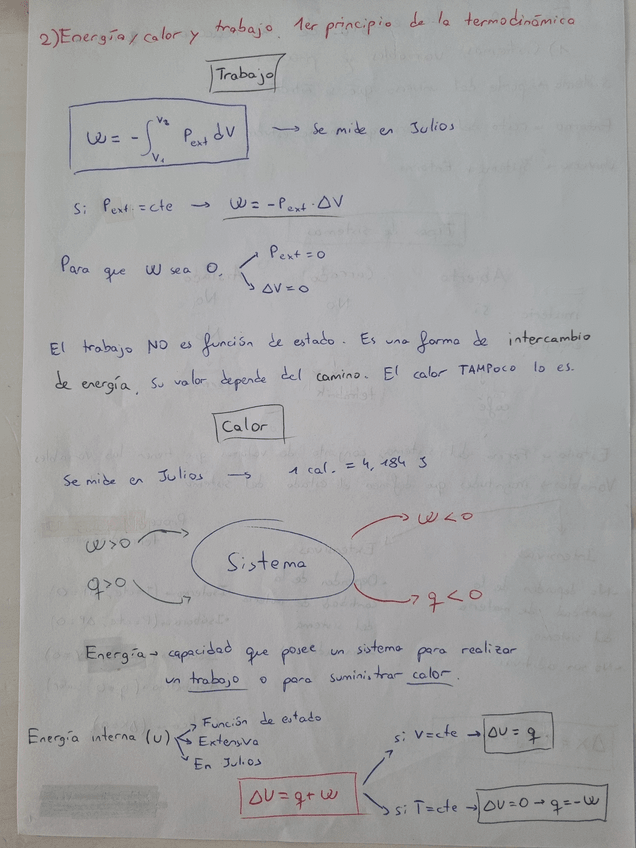 2) Energía, calor y trabajo. 1er principio de la termodinámica
Trabajo
W = -∫V₁V₂ Pext dV → Se mide en Julios
Si Pext = cte → W = -Pext · ΔV
Para que W sea 0. Pext = 0
ΔV = 0
El trabajo NO es función de estado. Es una forma de intercambio
de energía. Su valor depende del camino. El calor TAMPOCO lo es.
Calor
Se mide en Julios → 1 cal. = 4,184 J
W>0
q>0
Sistema
W<0
q<0
Energía → capacidad que posee un sistema para realizar
un trabajo o para suministrar calor.
Energía interna (U)
Función de estado
Extensiva
En Julios
ΔU = q + W
si V=cte → ΔU = q
si T=cte → ΔU = 0 → q = -W